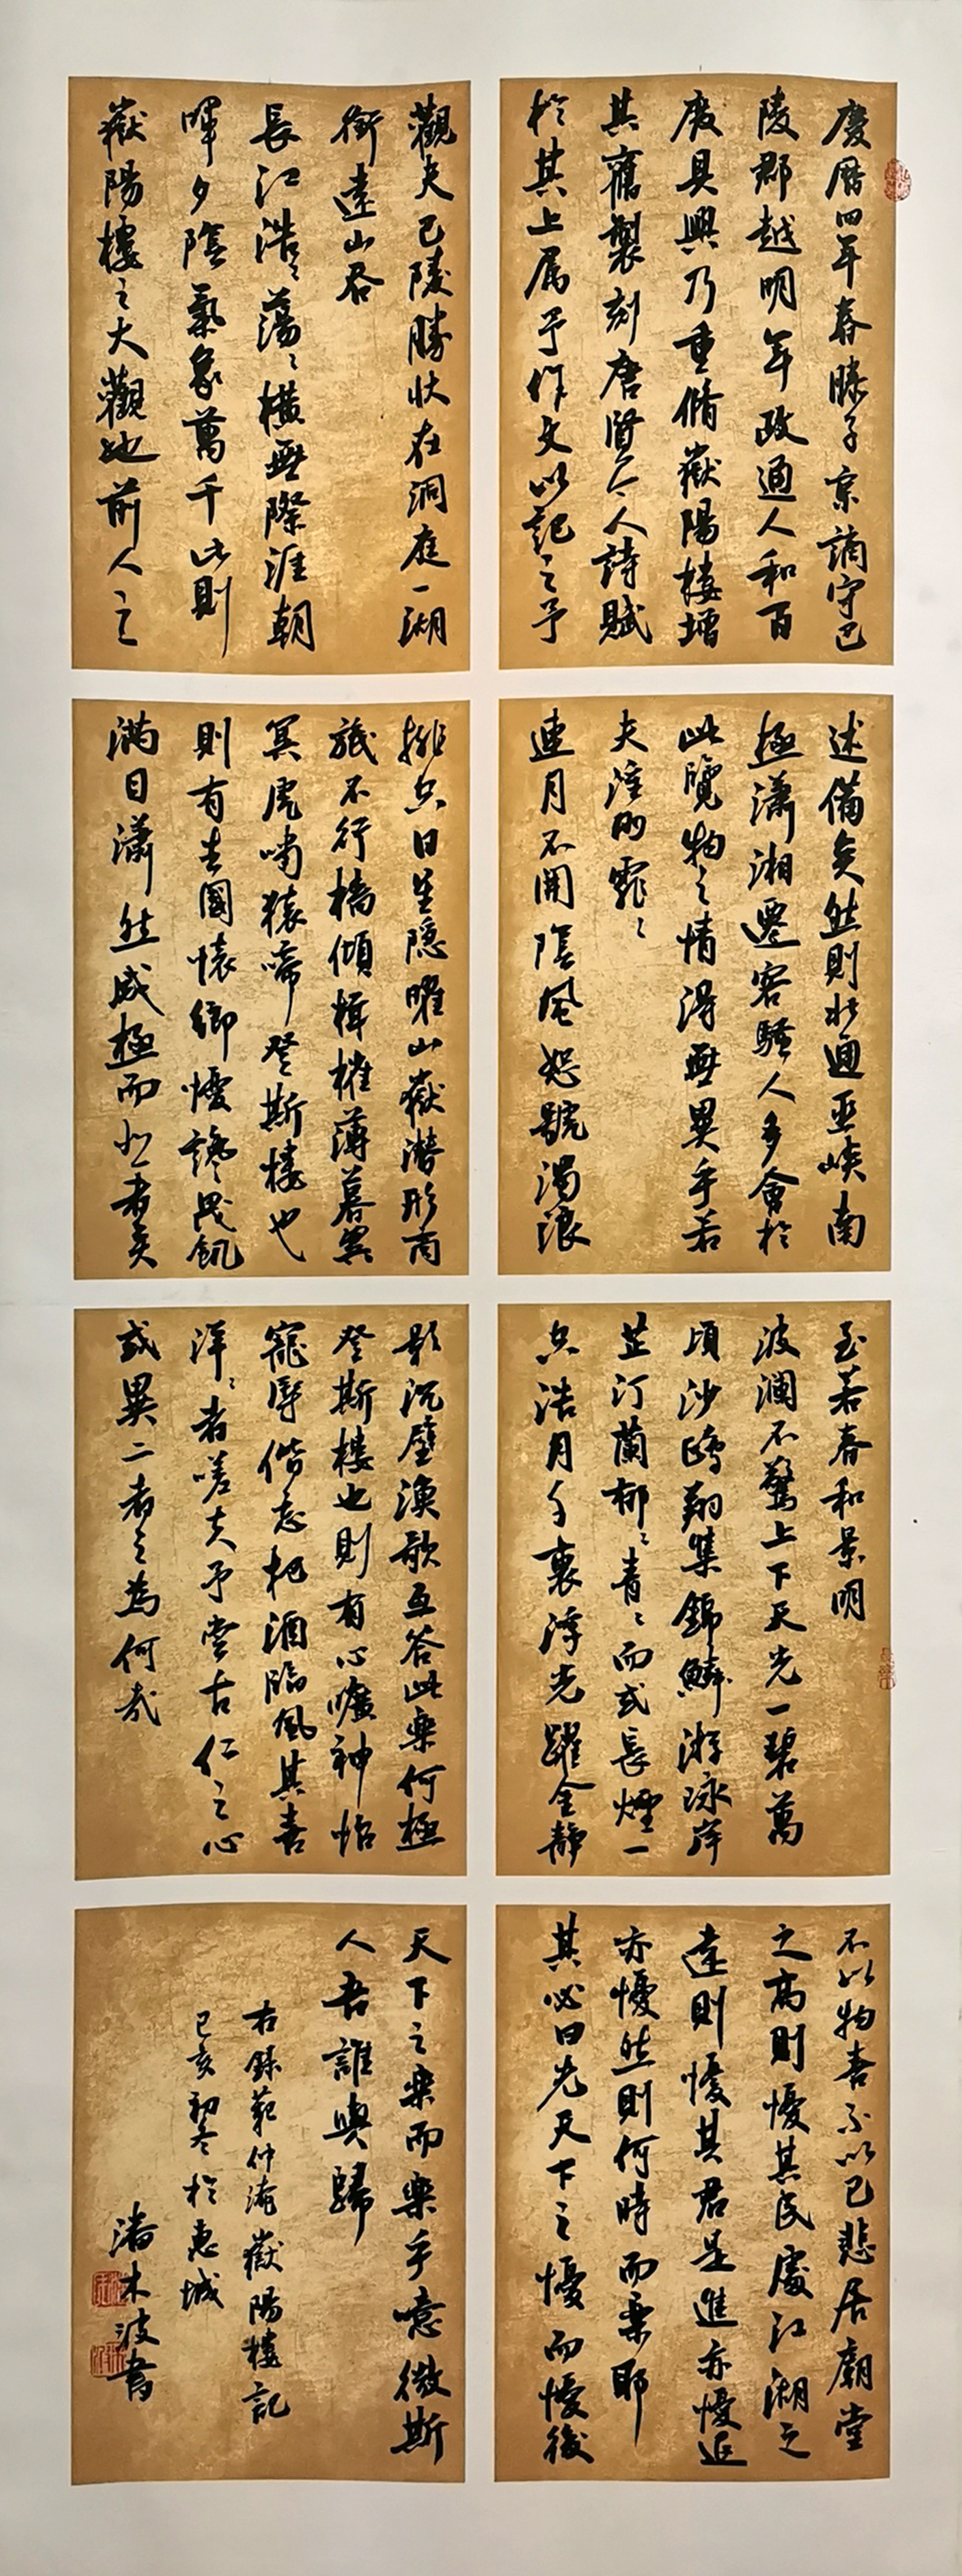 慶曆四年春滕子京謫守巴
陵郡越明年政通人和百
廢具興乃重脩嶽陽樓增
其舊製刻唐賢今人詩賦
於其上属予作文以記之予
觀夫巴陵勝狀在洞庭一湖
銜遠山吞
長江浩〻蕩〻橫無際涯朝
暉夕陰氣象萬千此則
嶽陽樓之大觀也前人之
述備矣然則北通巫峽南
極瀟湘遷客騷人多會於
此覽物之情得無異乎若
夫淫雨霏〻
連月不開陰風怒號濁浪
排空日星隱曜山嶽潛形商
旅不行檣傾楫摧薄暮冥
冥虎嘯猿啼登斯樓也
則有去國懷鄉憂讒畏譏
滿目瀟然感極而悲者矣
至若春和景明
波瀾不驚上下天光一碧萬
頃沙鷗翔集錦鱗游泳岸
芷汀蘭郁〻青〻而或長煙一
空浩月千裏浮光躍金靜
影沉璧漁歌互答此樂何極
登斯樓也則有心曠神怡
寵辱偕忘把酒臨風其喜
洋〻者嗟夫予嘗古仁之心
或異二者之為何哉
不以物喜不以己悲居廟堂
之高則憂其民處江湖之
遠則憂其君是進亦憂退
亦憂然則何時而樂耶
其必曰先天下之憂而憂後
天下之樂而樂乎噫微斯
人吾誰與歸
右錄范仲淹嶽陽樓記
己亥初冬於惠城
潘木波書